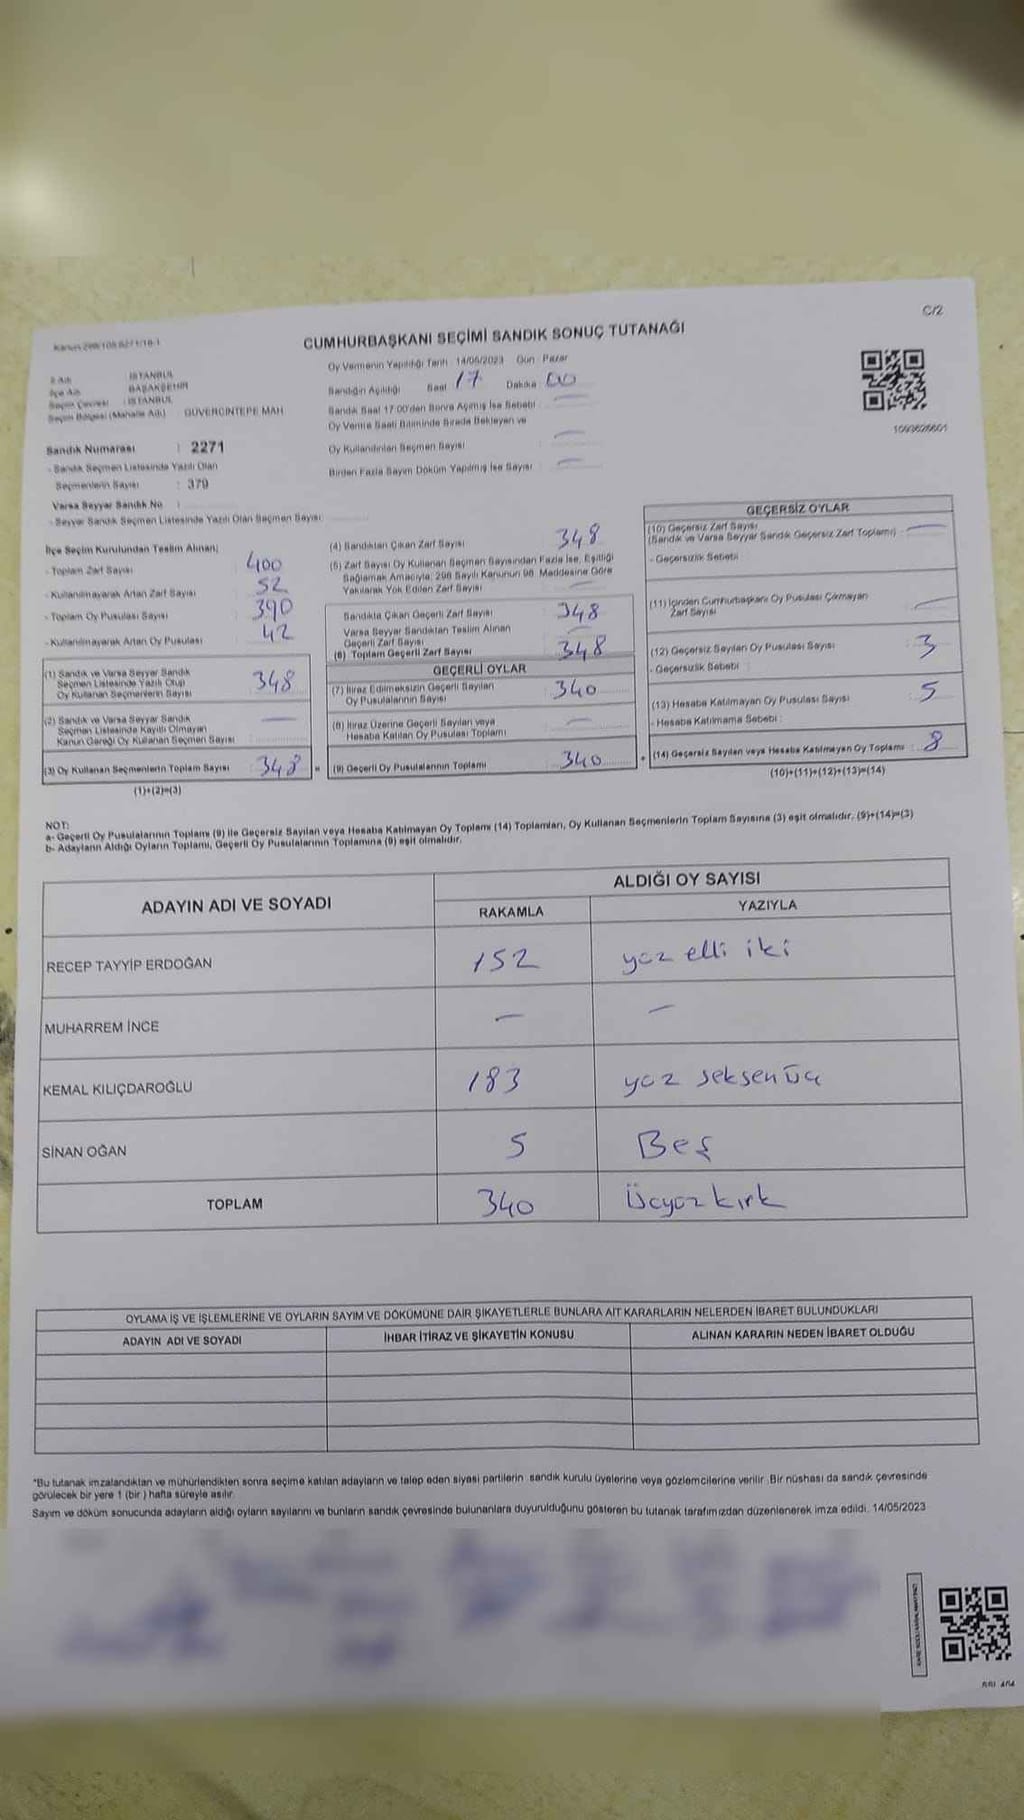 C/2
CUMHURBAŞKANI SEÇİMİ SANDIK SONUÇ TUTANAĞI
İSTANBUL
BAŞAKŞEHİR
: İSTANBUL
Seçim Bölgesi (Mahalle Adı) : GÜVERCİNTEPE MAH
Oy Vermenin Yapıldığı Tarih : 14/05/2023 Gün : Pazar
Sandığın Açıldığı Saat : 17 Dakika : 00
Sandık Saat 17:00'den Sonra Açılmış İse Sebebi
Oy Verme Saati Bitiminde Sırada Bekleyen ve
Oy Kullandırılan Seçmen Sayısı
Birden Fazla Sayım Döküm Yapılmış İse Sayısı
Sandık Numarası : 2271
- Sandık Seçmen Listesinde Yazılı Olan
Seçmenlerin Sayısı : 379
Varsa Seyyar Sandık No :
- Seyyar Sandık Seçmen Listesinde Yazılı Olan Seçmen Sayısı:
İlçe Seçim Kurulundan Teslim Alınan;
- Toplam Zarf Sayısı 400
- Kullanılmayarak Artan Zarf Sayısı 52
- Toplam Oy Pusulası Sayısı 390
- Kullanılmayarak Artan Oy Pusulası 42
(1) Sandık ve Varsa Seyyar Sandık
Seçmen Listesinde Yazılı Olup
Oy Kullanan Seçmenlerin Sayısı 348
(2) Sandık ve Varsa Seyyar Sandık
Seçmen Listesinde Kayıtlı Olmayan
Kanun Gereği Oy Kullanan Seçmen Sayısı —
(3) Oy Kullanan Seçmenlerin Toplam Sayısı 348 =
(1)+(2)=(3)
(4) Sandıktan Çıkan Zarf Sayısı 348
(5) Zarf Sayısı Oy Kullanan Seçmen Sayısından Fazla İse, Eşitliği
Sağlamak Amacıyla, 298 Sayılı Kanunun 98. Maddesine Göre
Yakılarak Yok Edilen Zarf Sayısı —
Sandıkta Çıkan Geçerli Zarf Sayısı 348
Varsa Seyyar Sandıktan Teslim Alınan
Geçerli Zarf Sayısı —
(6) Toplam Geçerli Zarf Sayısı 348
GEÇERLİ OYLAR
(7) İtiraz Edilmeksizin Geçerli Sayılan
Oy Pusulalarının Sayısı 340
(8) İtiraz Üzerine Geçerli Sayılan veya
Hesaba Katılan Oy Pusulası Toplamı —
(9) Geçerli Oy Pusulalarının Toplamı 340 +
GEÇERSİZ OYLAR
(10) Geçersiz Zarf Sayısı
(Sandık ve Varsa Seyyar Sandık Geçersiz Zarf Toplamı) : —
- Geçersizlik Sebebi :
(11) İçinden Cumhurbaşkanı Oy Pusulası Çıkmayan
Zarf Sayısı —
(12) Geçersiz Sayılan Oy Pusulası Sayısı : 3
- Geçersizlik Sebebi :
(13) Hesaba Katılmayan Oy Pusulası Sayısı : 5
- Hesaba Katılmama Sebebi :
(14) Geçersiz Sayılan veya Hesaba Katılmayan Oy Toplamı : 8
(10)+(11)+(12)+(13)=(14)
NOT:
a- Geçerli Oy Pusulalarının Toplamı (9) ile Geçersiz Sayılan veya Hesaba Katılmayan Oy Toplamı (14) Toplamları, Oy Kullanan Seçmenlerin Toplam Sayısına (3) eşit olmalıdır. (9)+(14)=(3)
b- Adayların Aldığı Oyların Toplamı, Geçerli Oy Pusulalarının Toplamına (9) eşit olmalıdır.
ADAYIN ADI VE SOYADI
ALDIĞI OY SAYISI
RAKAMLA YAZIYLA
RECEP TAYYİP ERDOĞAN 152 yüz elli iki
MUHARREM İNCE — —
KEMAL KILIÇDAROĞLU 183 yüz seksen üç
SİNAN OĞAN 5 Beş
TOPLAM 340 Üçyüz kırk
OYLAMA İŞ VE İŞLEMLERİNE VE OYLARIN SAYIM VE DÖKÜMÜNE DAİR ŞİKAYETLERLE BUNLARA AİT KARARLARIN NELERDEN İBARET BULUNDUKLARI
ADAYIN ADI VE SOYADI İHBAR İTİRAZ VE ŞİKAYETİN KONUSU ALINAN KARARIN NEDEN İBARET OLDUĞU
*Bu tutanak imzalandıktan ve mühürlendikten sonra seçime katılan adayların ve talep eden siyasi partilerin sandık kurulu üyelerine veya gözlemcilerine verilir. Bir nüshası da sandık çevresinde
görülecek bir yere 1 (bir) hafta süreyle asılır.
Sayım ve döküm sonucunda adayların aldığı oyların sayılarını ve bunların sandık çevresinde bulunanlara duyurulduğunu gösteren bu tutanak tarafımızdan düzenlenerek imza edildi. 14/05/2023